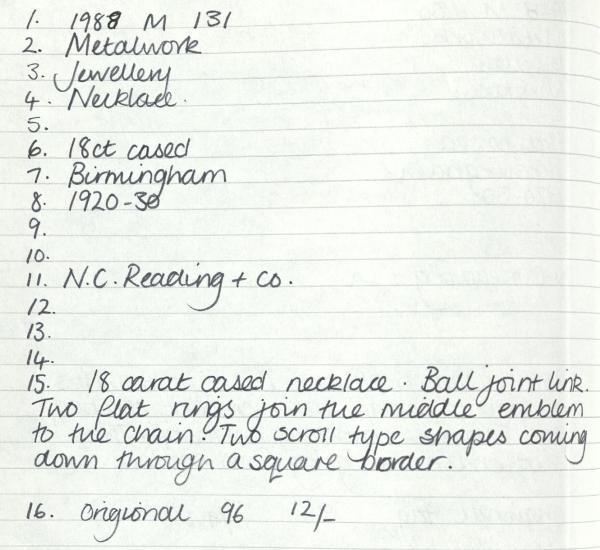 1. 1988 M 131
2. Metalwork
3. Jewellery
4. Necklace.
5.
6. 18ct cased
7. Birmingham
8. 1920-30
9.
10.
11. N.C. Reading + co.
12.
13.
14.
15. 18 carat cased necklace. Ball joint link.
Two flat rings join the middle emblem
to the chain. Two scroll type shapes coming
down through a square border.
16. Origional 96 12/-